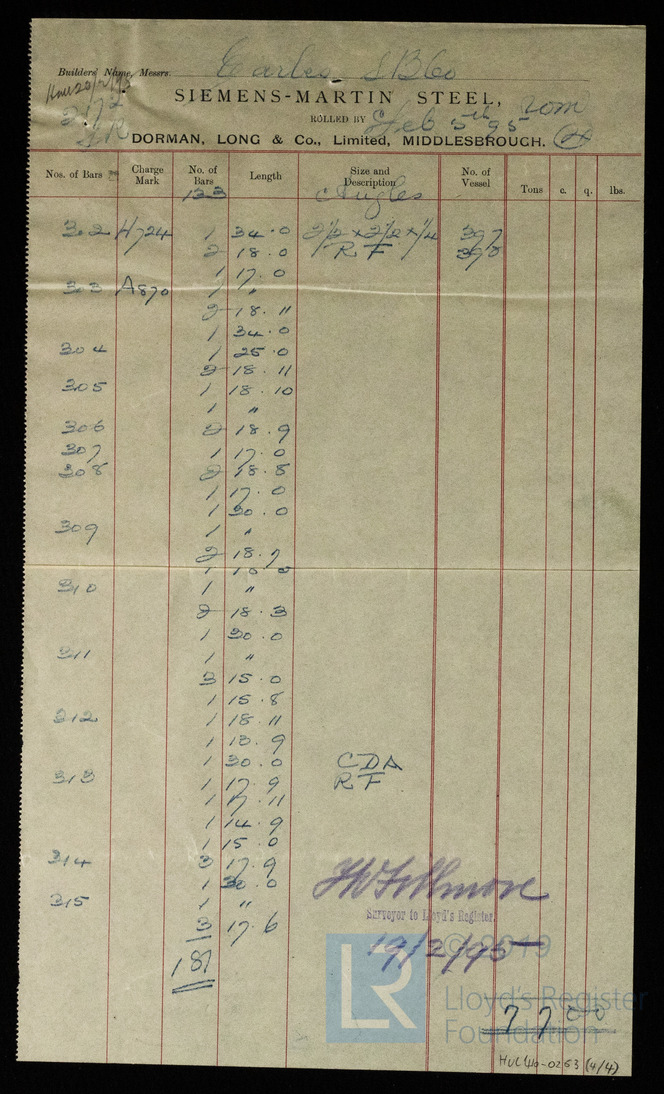 Builders' Name, Messrs. Earles S B Co
Hull 20/2/95
2172
LR
SIEMENS-MARTIN STEEL,
ROLLED BY Feb 5th 95
DORMAN, LONG & Co., Limited, MIDDLESBROUGH.
Nos. of Bars Charge Mark No. of Bars Length Size and Description No. of Vessel Tons c. q. lbs.
133 Angles
302 H724 1 34.0 2 1/2 x 2 1/2 x 1/4 397
2 18.0 R F 398
1 17.0
303 A870 1 "
2 18.11
1 34.0
304 1 25.0
2 18.11
305 1 18.10
1 "
306 2 18.9
307 1 17.0
308 2 18.8
1 17.0
1 30.0
309 1 "
2 18.7
1
310 1 "
2 18.3
1 30.0
311 1 "
3 15.0
1 15.8
312 1 18.11
1 13.9
1 30.0 CDA
313 1 17.9 R F
1 17.11
1 14.9
1 15.0
314 3 17.9
1 30.0
315 1 "
3 17.6
181
Surveyor to Lloyd's Register.
19/2/95
© 2019
LR
Lloyd's Register
Foundation
7 7
HUL40-0253 (4/4)